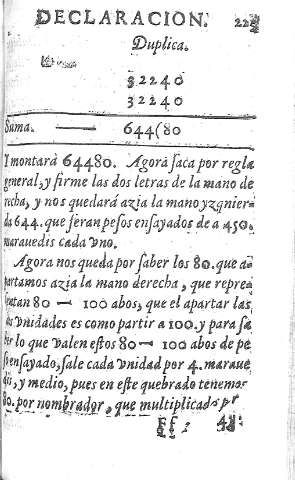 DECLARACION. 22
Duplica.
32240
32240
Suma. — 644(80
Y montarà 64480. Agora saca por regla
general, y firme las dos letras de la mano de
recha, y nos quedarà azia la mano yzquier-
da 644. que seran pesos ensayados de a 450.
marauedis cada vno.
Agora nos queda por saber los 80. que a-
partamos azia la mano derecha, que repre
sentan 80 — 100 abos, que el apartar las
dos vnidades es como partir a 100. y para sa
ber lo que valen estos 80 — 100 abos de pe
so ensayado, sale cada vnidad por 4. maraue
dis, y medio, pues en este quebrado tenemos
80. por nombrador, que multiplicados por
Ff